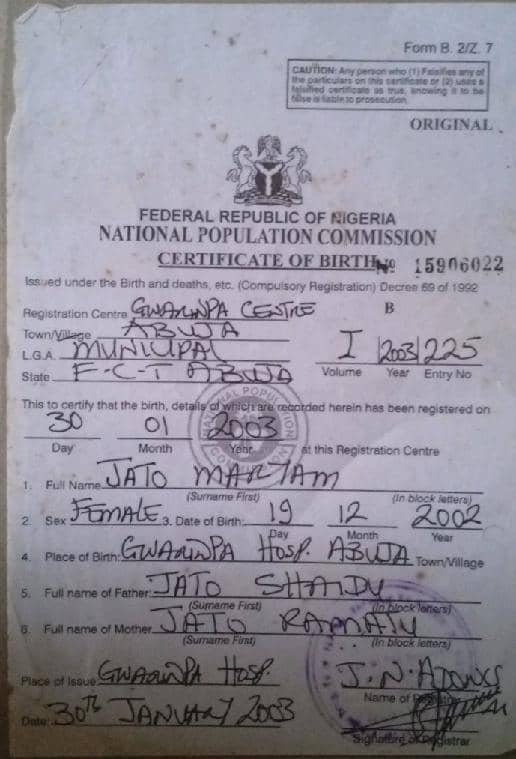 Form B. 2/Z. 7
CAUTION: Any person who (1) Falsifies any of
the particulars on this certificate or (2) uses a
falsified certificate as true, knowing it to be
false is liable to prosecution.
ORIGINAL
FEDERAL REPUBLIC OF NIGERIA
NATIONAL POPULATION COMMISSION
CERTIFICATE OF BIRTH № 15906022
Issued under the Birth and deaths, etc. (Compulsory Registration) Decree 69 of 1992
Registration Centre GWARINPA CENTRE B
Town/Village ABUJA
L.G.A. MUNICIPAL I 2003 225
State F-C-T ABUJA Volume Year Entry No
This to certify that the birth, details of which are recorded herein has been registered on
30 01 2003
Day Month Year at this Registration Centre
1. Full Name JATO MARYAM
(Surname First) (In block letters)
2. Sex FEMALE 3. Date of Birth: 19 12 2002
Day Month Year
4. Place of Birth: GWARINPA HOSP. ABUJA Town/Village
5. Full name of Father: JATO
(Surname First) (In block letters)
6. Full name of Mother JATO
(Surname First) (In block letters)
Place of Issue GWARINPA HOSP. J. N.
Name of Registrar
Date: 30TH JANUARY 2003
Signature of Registrar